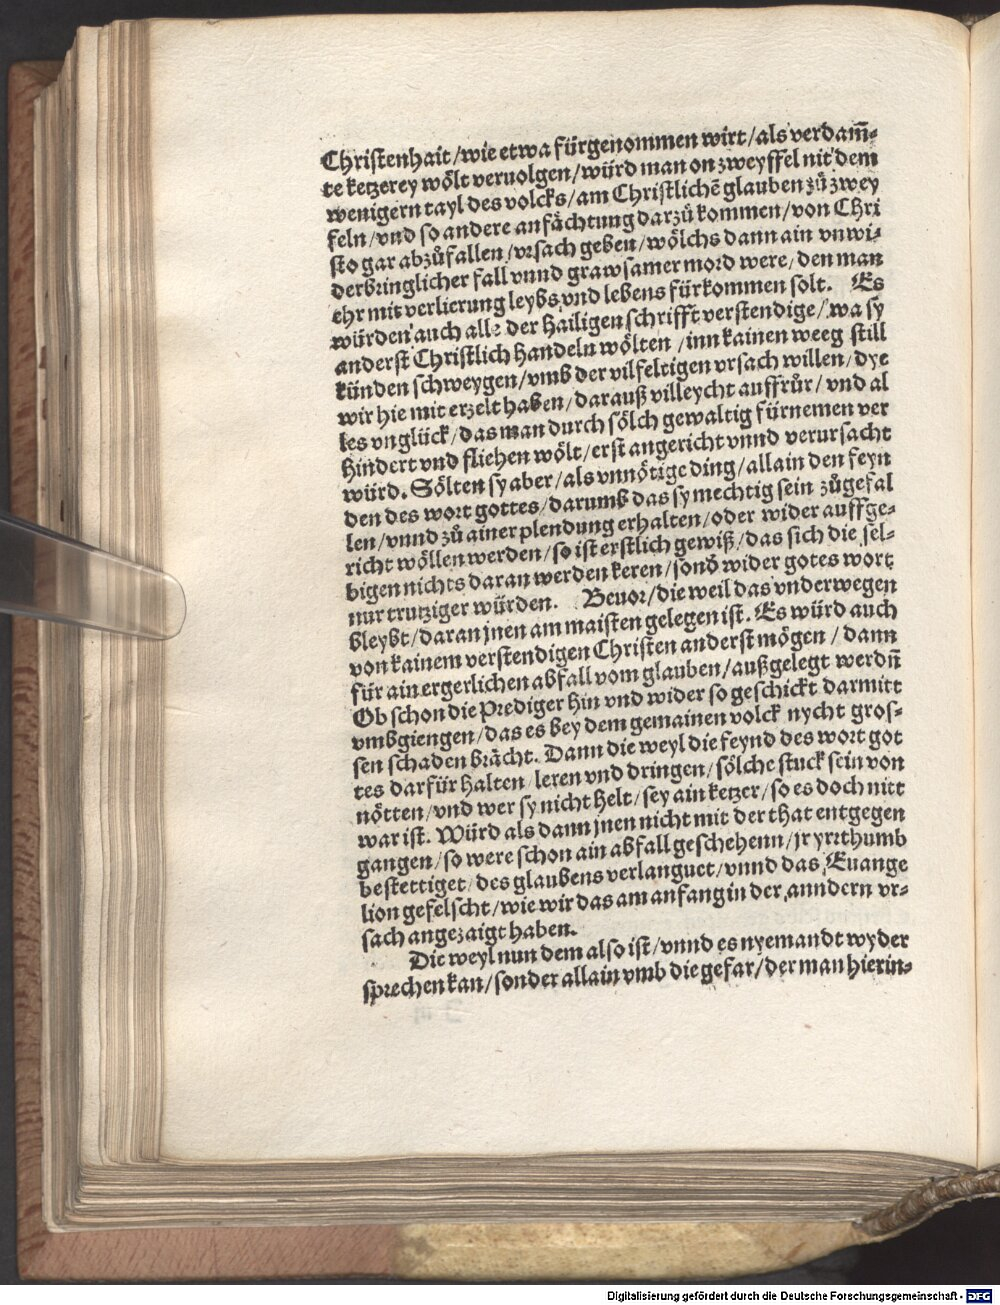 Christenhait/wie etwa fürgenommen wirt/als verdam̃⸗
te ketzerey wölt veruolgen/würd man on zweyffel nit dem
wenigern tayl des volcks/am Christlichē glauben zů zwey
feln/vnd so andere anfächtung darzů kommen/von Chri
sto gar abzůfallen/vrsach geben/wölchs dann ain vnwi⸗
derbringlicher fall vnnd grawsamer mord were/den man
ehr mit verlierung leybs vnd lebens fürkommen solt. Es
würden auch alle der Hailigen schrifft verstendige/wa sy
anderst Christlich handeln wölten/inn kainen weeg still
künden schweygen/vmb der vilfeltigen vrsach willen/dye
wir hie mit erzelt haben/darauß villeycht auffrůr/vnd al
les vnglück/das man durch sölch gewaltig fürnemen ver
hindert vnd fliehen wölt/erst angericht vnnd verursacht
würd. Sölten sy aber/als vnnötige ding/allain den feyn
den des wort gottes/darumb das sy mechtig sein zůgefal
len/vnnd zů ainer plendung erhalten/oder wider auffge⸗
richt wöllen werden/so ist erstlich gewiß/das sich die sel⸗
bigen nichts daran werden keren/sond̕ wider gotes wort
nur trutziger würden. Beuor/die weil das vnderwegen
bleybt/daran jnen am maisten gelegen ist. Es würd auch
von kainem verstendigen Christen anderst mögen/dann
für ain ergerlichen abfall vom glauben/außgelegt werdn̄
Ob schon die Prediger hin vnd wider so geschickt darmitt
vmbgiengen/das es bey dem gemainen volck nycht gros⸗
sen schaden brächt. Dann die weyl die feynd des wort got
tes darfür halten/leren vnd dringen/sölche stuck sein von
nötten/vnd wer sy nicht helt/sey ain ketzer/so es doch nitt
war ist. Würd als dann jnen nicht mit der that entgegen
gangen/so were schon ain abfall geschehenn/jr yrrthumb
bestettiget/des glaubens verlanguet/vnnd das Euange
lion gefelscht/wie wir das am anfang in der anndern vr⸗
sach angezaigt haben.
Die weyl nun dem also ist/vnnd es nyemandt wyder
sprechen kan/sonder allain vmb die gefar/der man hierin⸗
Digitalisierung gefördert durch die Deutsche Forschungsgemeinschaft - DFG